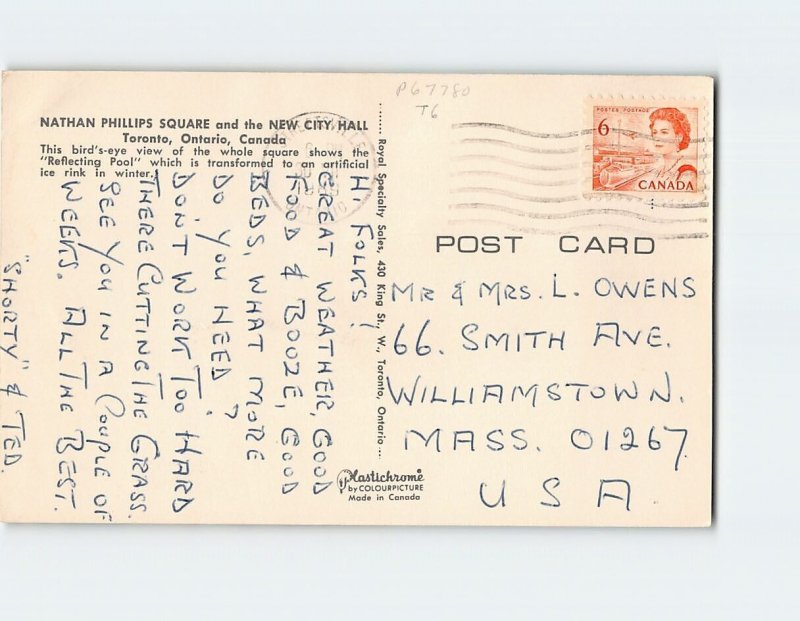 P67780
T6
NATHAN PHILLIPS SQUARE and the NEW CITY HALL
Toronto, Ontario, Canada
This bird's-eye view of the whole square shows the
"Reflecting Pool" which is transformed to an artificial
ice rink in winter.
HI FOLKS!
GREAT WEATHER, GOOD
FOOD & BOOZE, GOOD
BEDS, WHAT MORE
DO YOU NEED?
DON'T WORK TOO HARD
THERE CUTTING THE GRASS.
SEE YOU IN A COUPLE OF
WEEKS. ALL THE BEST.
"SHORTY" & TED.
Royal Specialty Sales, 430 King St., W., Toronto, Ontario
Plastichrome
by COLOURPICTURE
Made in Canada
POSTES POSTAGE
6
CANADA
POST CARD
MR & MRS. L. OWENS
66. SMITH AVE.
WILLIAMSTOWN.
MASS. 01267.
U S A.